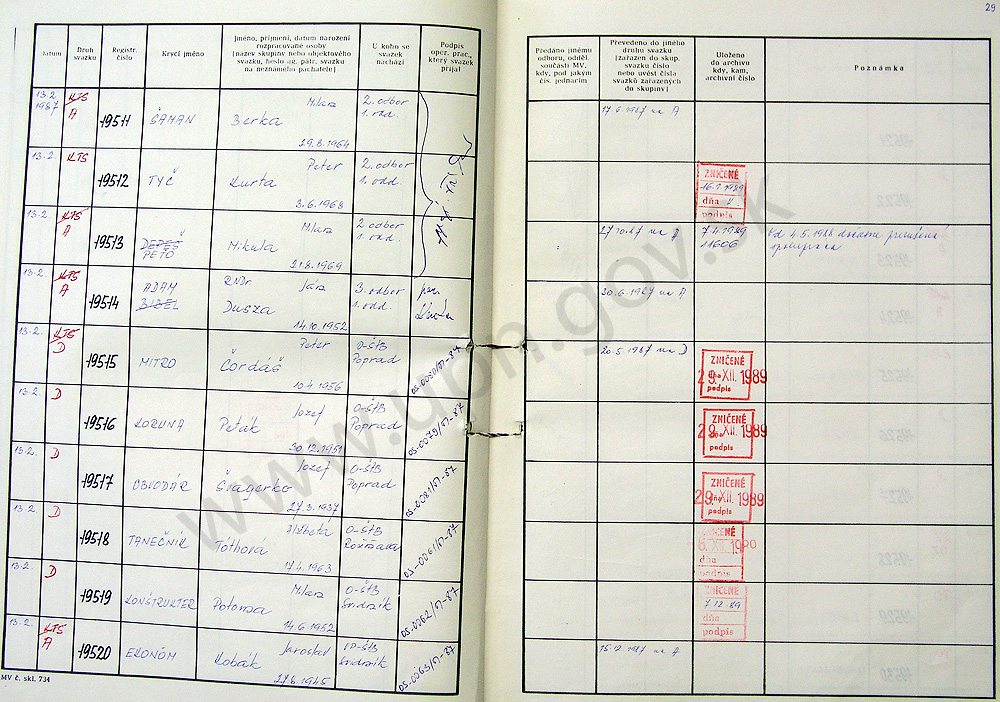 29
Datum
Druh svazku
Registr. číslo
Krycí jméno
Jméno, příjmení, datum narození
rozpracované osoby
[název skupiny nebo objektového
svazku, heslo ag. pátr. svazku
na neznámého pachatele]
U koho se
svazek
nachází
Podpis
oper. prac.,
který svazek
přijal
Předáno jinému
odboru, odděl.
součásti MV,
kdy, pod jakým
čís. jednacím
Převedeno do jiného
druhu svazku
[zařazen do skup.
svazku číslo
nebo uvést čísla
svazků zařazených
do skupiny]
Uloženo
do archivu
kdy, kam,
archivní číslo
Poznámka
13.2. 1987 KTS A 19511 ŠAMAN Milan Berka 29.8.1964 2. odbor 1. odd. 17.6.1987 na A
13.2. KTS 19512 TYČ Peter Kurta 3.6.1968 2. odbor 1. odd.
ZNIČENÉ
dňa
podpis
13.2. KTS A 19513 PETO Milan Mikula 21.8.1969 2. odbor 1. odd. 27.10.87 na A 7.4.1989 11606 Od 4.5.1988 dočasne prerušená
spolupráca
13.2. KTS A 19514 ADAM RNDr Ján Dusza 14.10.1952 3. odbor 1. odd. 30.6.1987 na A
13.2. KTS D 19515 MITRO Peter Čordáš 10.4.1956 O-ŠtB Poprad OS-0080/01-87 20.5.1987 na D
ZNIČENÉ
29. XII. 1989
dňa
podpis
13.2. D 19516 KORUNA Jozef Peták 30.12.1951 O-ŠtB Poprad OS-0079/01-87
ZNIČENÉ
29. XII. 1989
dňa
podpis
13.2. D 19517 OBVODÁR Jozef Švagerko 27.3.1937 O-ŠtB Poprad OS-0081/01-87
ZNIČENÉ
29. XII. 1989
dňa
podpis
13.2. D 19518 TANEČNÍK Alžbeta Tóthová 17.4.1963 O-ŠtB Rožňava OS-0061/01-87
ZNIČENÉ
dňa
podpis
13.2. D 19519 KONŠTRUKTER Milan Potoma 14.6.1952 O-ŠtB Svidník OS-0062/01-87
ZNIČENÉ
7.12.89
dňa
podpis
13.2. KTS A 19520 EKONÓM Jaroslav Kobák 27.6.1945 O-ŠtB Svidník OS-0063/01-87 15.12.1987 na A
MV č. skl. 734
www.upn.gov.sk